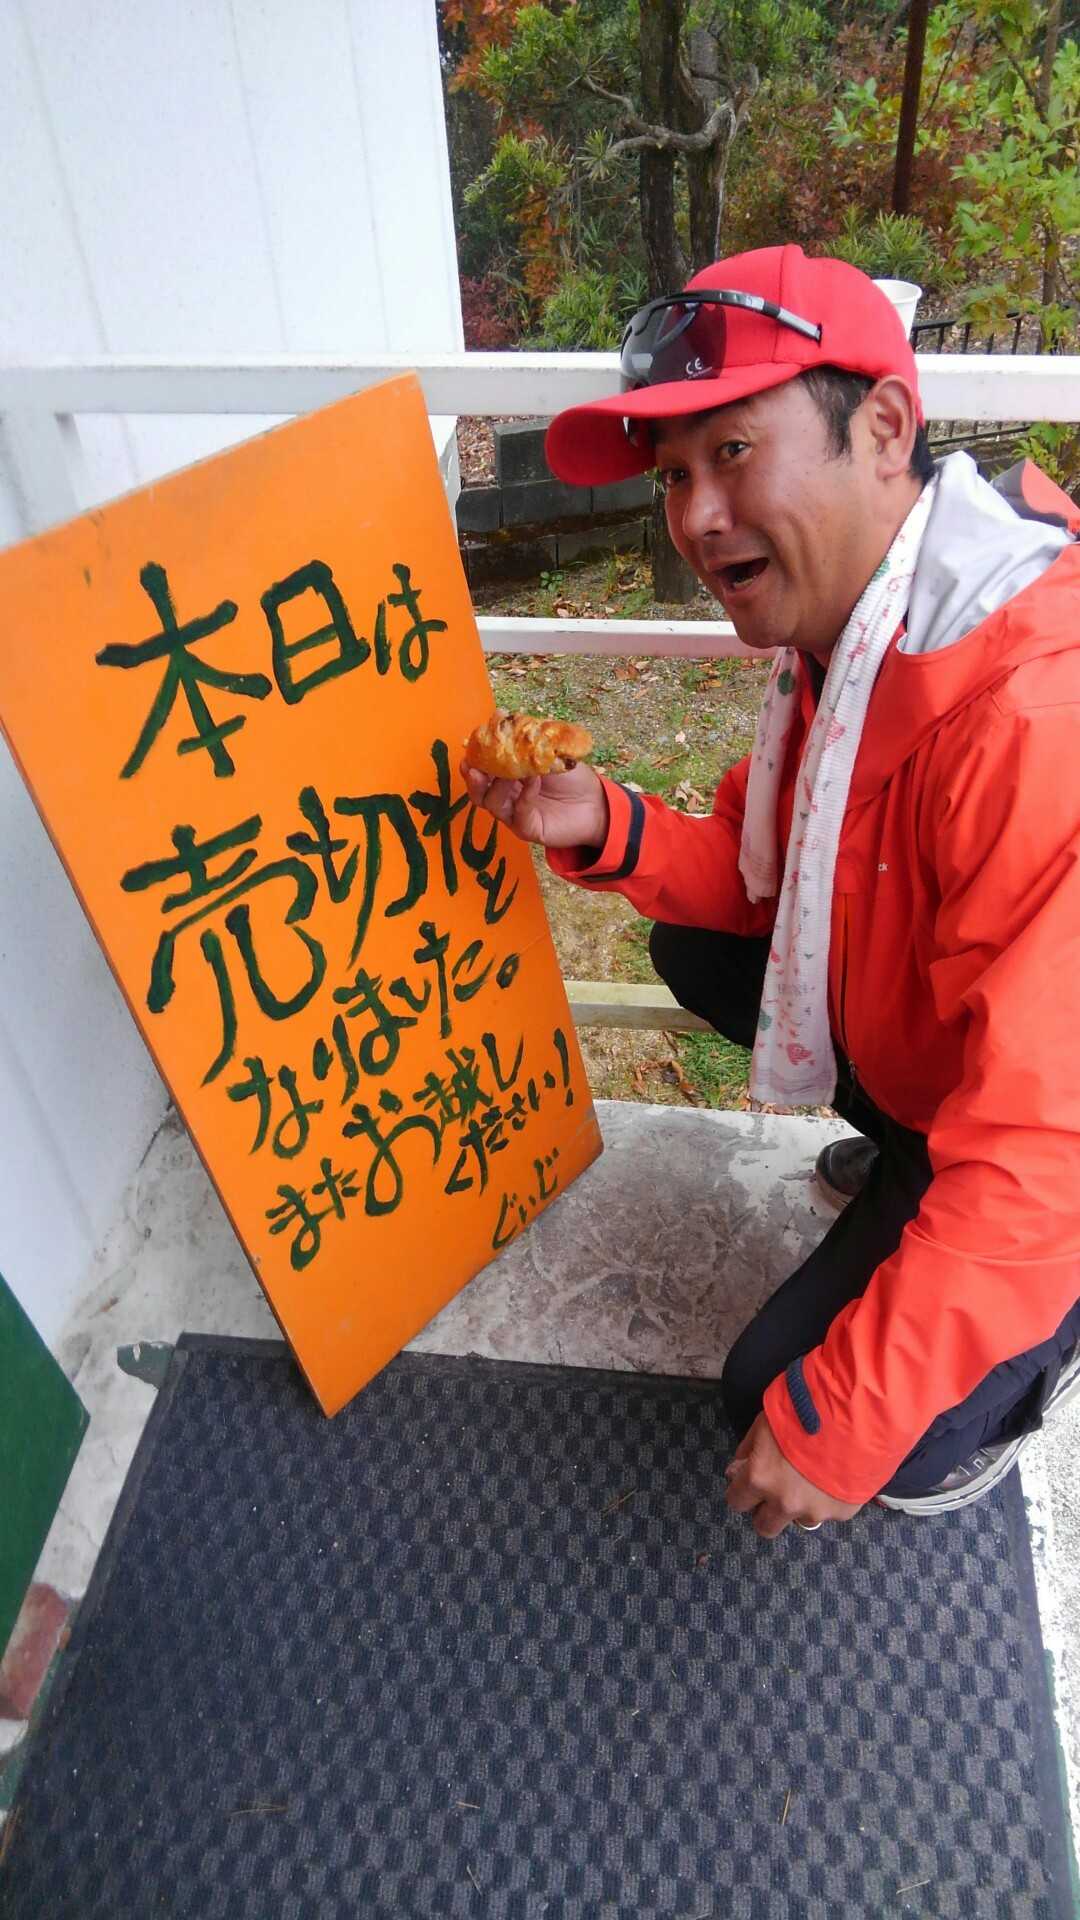 本日は
売切れと
なりました。
またお越し
ください!
ぐぃじ
CE